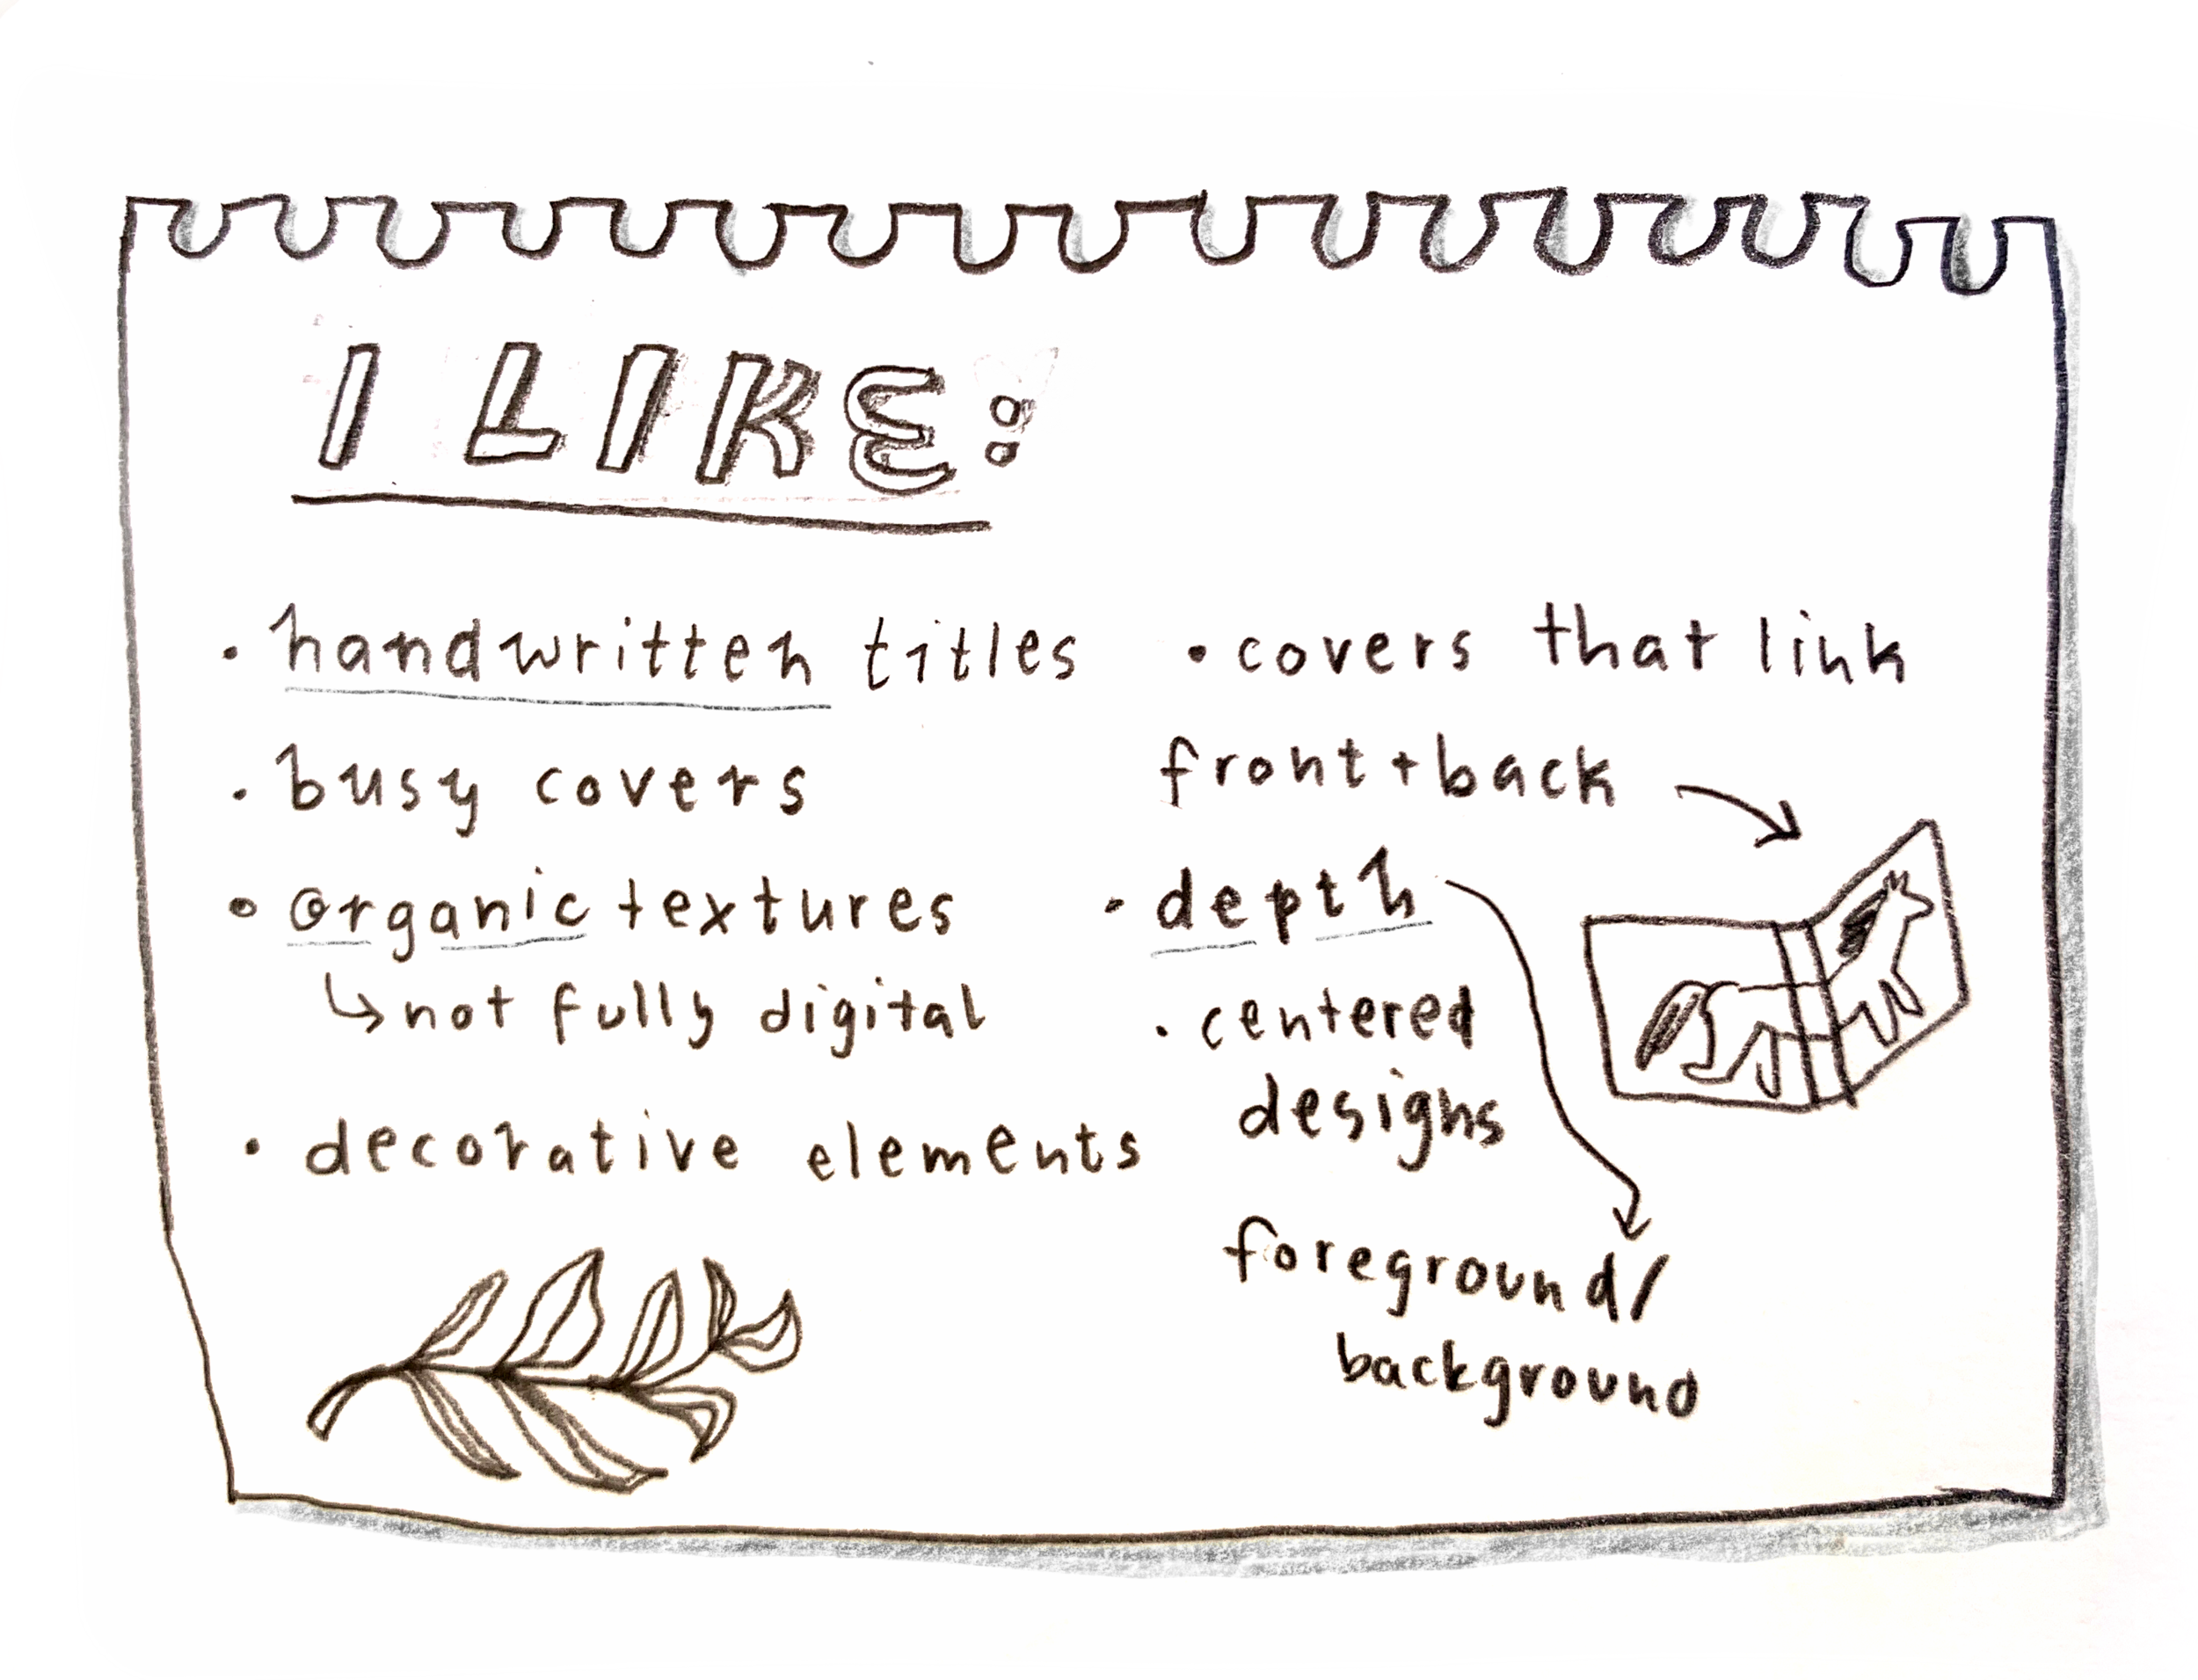 I LIKE:
• handwritten titles
• busy covers
• organic textures
↳ not fully digital
• decorative elements
• covers that link
front + back →
• depth
• centered
designs
foreground/
background